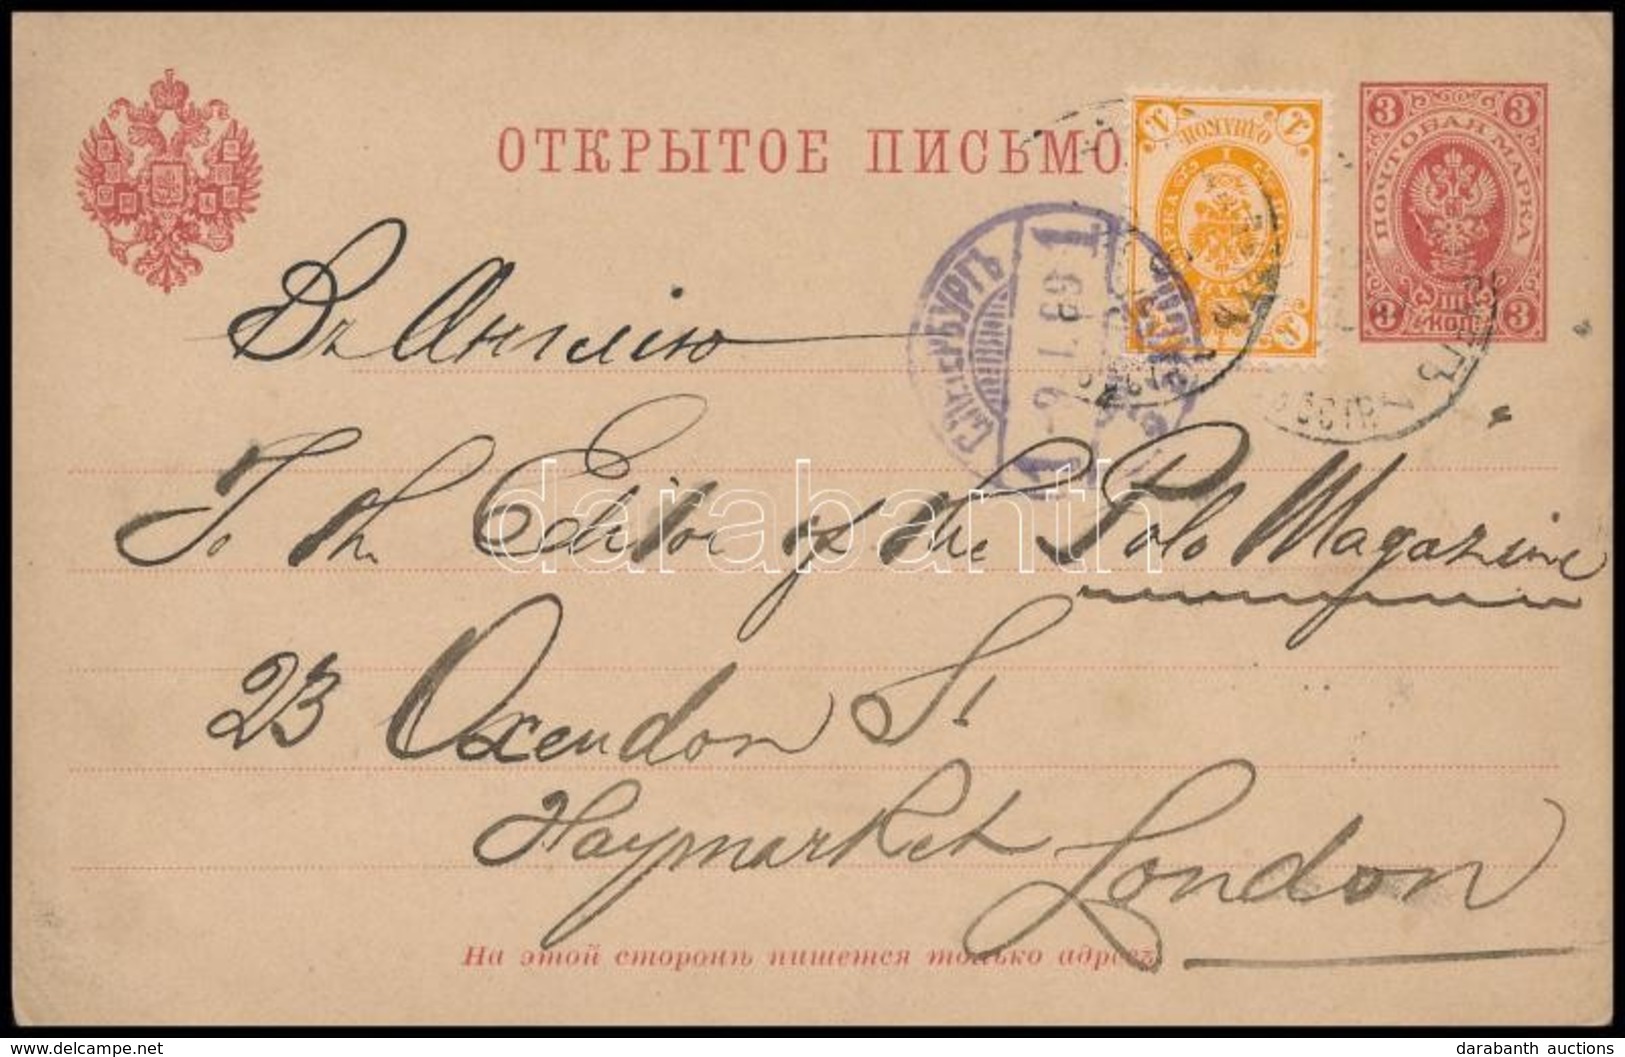 ОТКРЫТОЕ ПИСЬМО
3 3
ПОЧТОВАЯ МАРКА
3 КОП. 3
1 1
С.ПЕТЕРБУРГЪ
Въ Англію
To the Editor of the Polo Magazine
darabanth
23 Oxendon St
Haymarket London
На этой сторонѣ пишется только адресъ.
delcampe.net
darabanth auctions